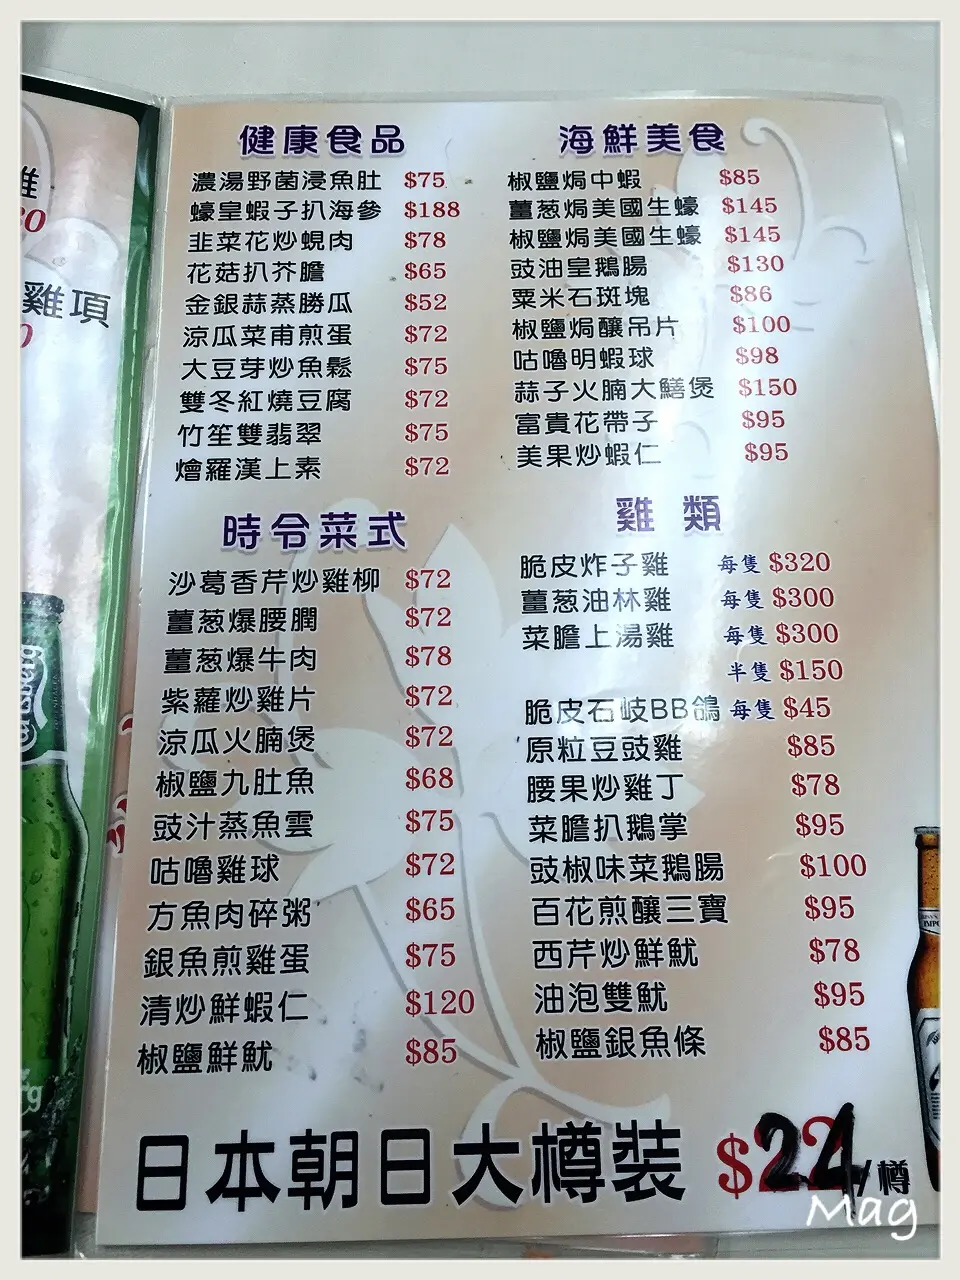 雞項
健康食品
濃湯野菌浸魚肚 $75
蠔皇蝦子扒海參 $188
韭菜花炒蜆肉 $78
花菇扒芥膽 $65
金銀蒜蒸勝瓜 $52
涼瓜菜甫煎蛋 $72
大豆芽炒魚鬆 $75
雙冬紅燒豆腐 $72
竹笙雙翡翠 $75
燴羅漢上素 $72
時令菜式
沙葛香芹炒雞柳 $72
薑葱爆腰膶 $72
薑葱爆牛肉 $78
紫蘿炒雞片 $72
涼瓜火腩煲 $72
椒鹽九肚魚 $68
豉汁蒸魚雲 $75
咕嚕雞球 $72
方魚肉碎粥 $65
銀魚煎雞蛋 $75
清炒鮮蝦仁 $120
椒鹽鮮魷 $85
海鮮美食
椒鹽焗中蝦 $85
薑葱焗美國生蠔 $145
椒鹽焗美國生蠔 $145
豉油皇鵝腸 $130
粟米石斑塊 $86
椒鹽焗釀吊片 $100
咕嚕明蝦球 $98
蒜子火腩大鱔煲 $150
富貴花帶子 $95
美果炒蝦仁 $95
雞類
脆皮炸子雞 每隻 $320
薑葱油林雞 每隻 $300
菜膽上湯雞 每隻 $300
半隻 $150
脆皮石岐BB鴿 每隻 $45
原粒豆豉雞 $85
腰果炒雞丁 $78
菜膽扒鵝掌 $95
豉椒味菜鵝腸 $100
百花煎釀三寶 $95
西芹炒鮮魷 $78
油泡雙魷 $95
椒鹽銀魚條 $85
日本朝日大樽裝 $24/樽
Mag